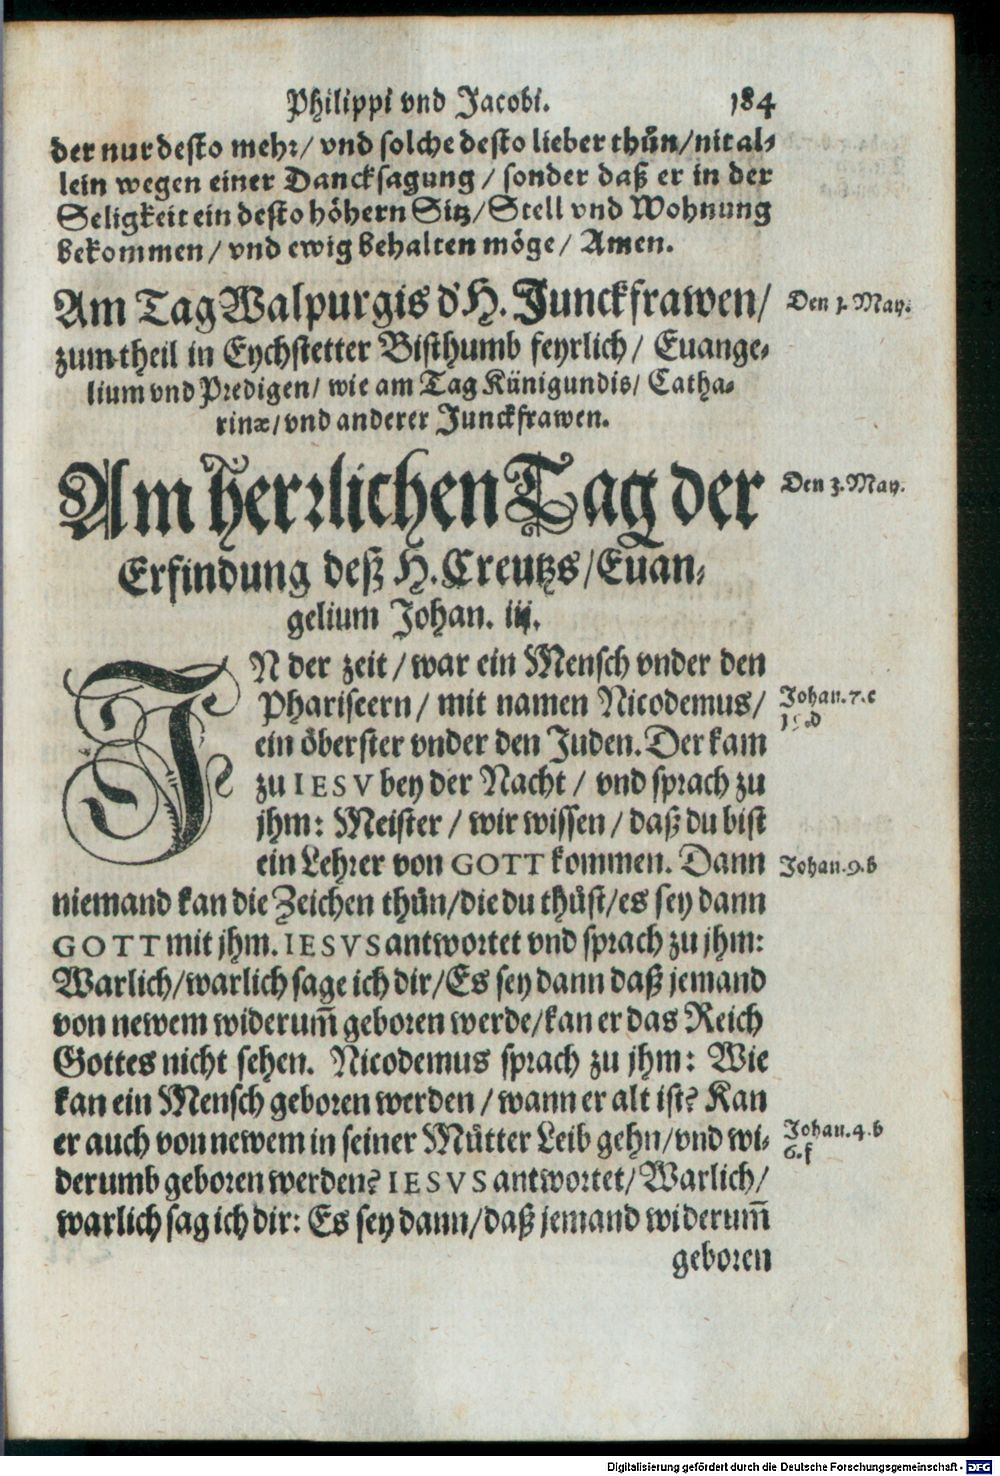 Philippi vnd Jacobi. 184
der nur desto mehr/ vnd solche desto lieber thůn/nit al-
lein wegen einer Dancksagung / sonder daß er in der
Seligkeit ein desto höhern Sitz/ Stell vnd Wohnung
bekommen/ vnd ewig behalten möge/ Amen.
Am Tag Walpurgis d' H. Junckfrawen/ Den 1. May.
zum theil in Eychstetter Bisthumb feyrlich/ Euange-
lium vnd Predigen/ wie am Tag Künigundis/ Catha-
rinæ/ vnd anderer Junckfrawen.
Am herrlichen Tag der Den 3. May.
Erfindung deß H. Creutzs/Euan-
gelium Johan. iij.
IN der zeit / war ein Mensch vnder den
Phariseern/ mit namen Nicodemus/ Johan. 7.c
ein öberster vnder den Juden. Der kam
zu IESV bey der Nacht / vnd sprach zu
jhm: Meister / wir wissen / daß du bist
ein Lehrer von GOTT kommen. Dann Johan. 9. b
niemand kan die Zeichen thůn/die du thůst/es sey dann
GOTT mit jhm. IESVS antwortet vnd sprach zu jhm:
Warlich/warlich sage ich dir/Es sey dann daß jemand
von newem widerum̃ geboren werde/kan er das Reich
Gottes nicht sehen. Nicodemus sprach zu jhm: Wie
kan ein Mensch geboren werden / wann er alt ist? Kan
er auch von newem in seiner Můtter Leib gehn/vnd wi- Johan. 4. b
6. f
derumb geboren werden? IESVS antwortet/ Warlich/
warlich sag ich dir: Es sey dann/daß jemand widerum̃
geboren
Digitalisierung gefördert durch die Deutsche Forschungsgemeinschaft - DFG